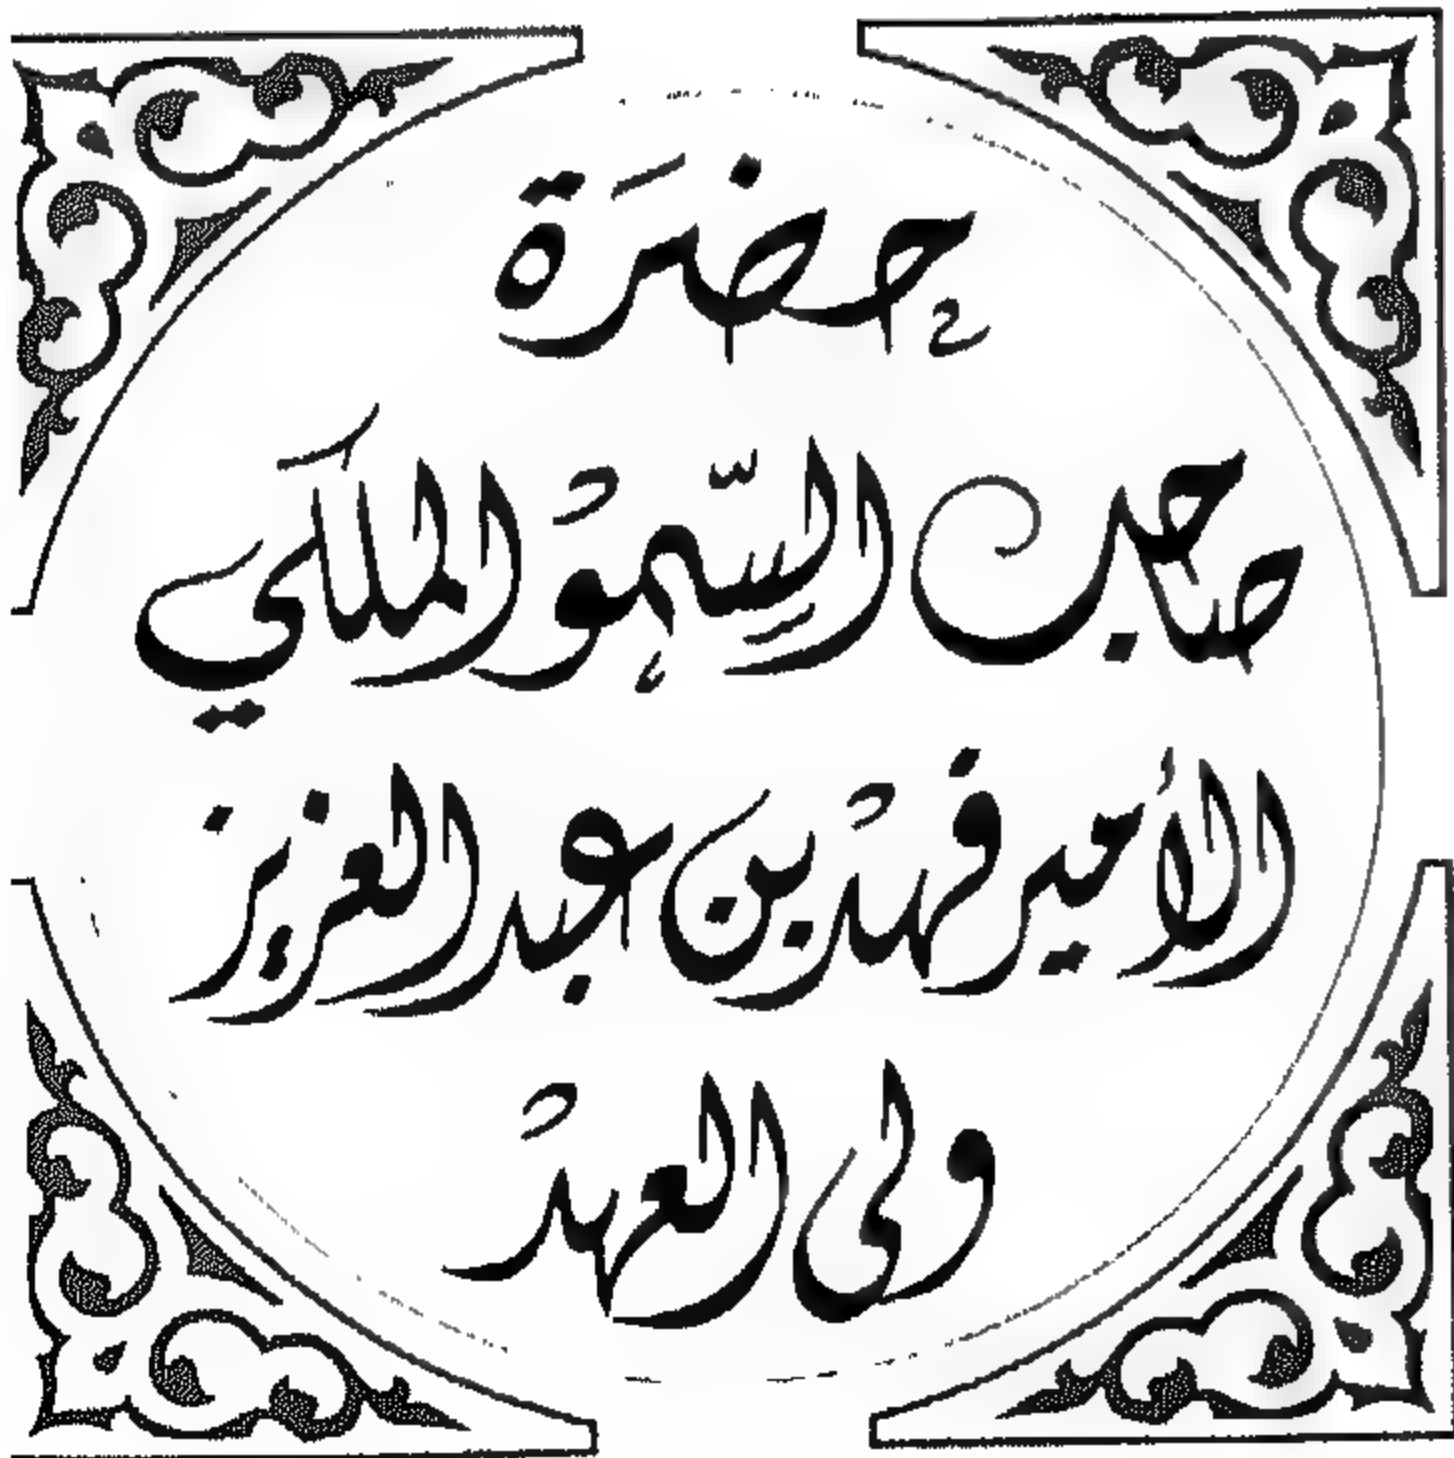 حضَرة
صاحب السّمو الملَكي
الأمير فهد بن عبد العزيز
ولى العهد